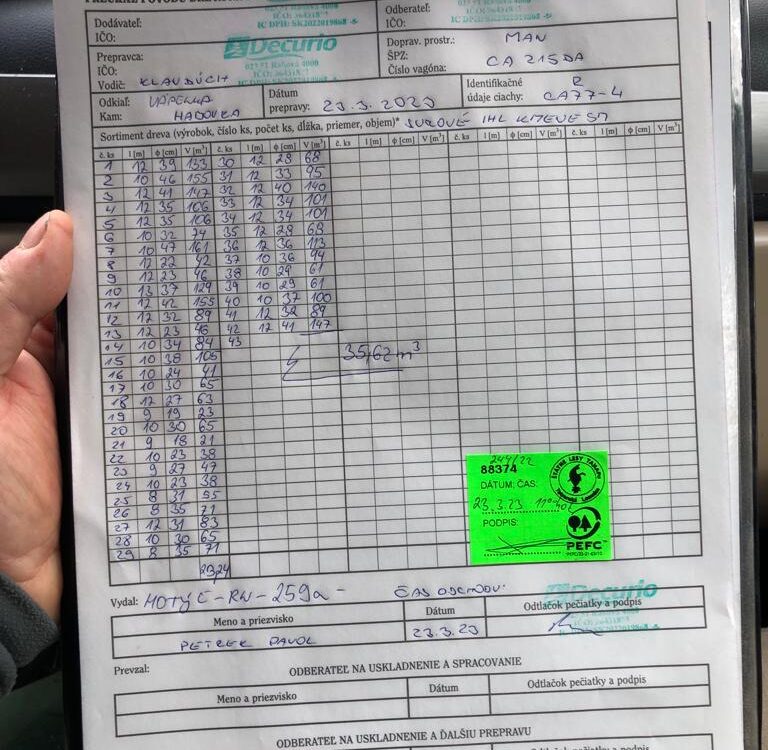 Dodávateľ:
IČO:
Odberateľ:
IČO:
IČ DPH: SK2022019868
Prepravca:
IČO:
Decurio
Vodič: KLAVDÚCH
Doprav. prostr.: MAN
ŠPZ: CA 215DA
Číslo vagóna:
Odkiaľ: VÁPENNÁ
Kam: HADOVKA
Dátum
prepravy: 23.3.2023
Identifikačné
údaje ciachy: CA77-4
Sortiment dreva (výrobok, číslo ks, počet ks, dĺžka, priemer, objem)* SUROVÉ IHL KMENE SM
č. ks l [m] ϕ [cm] V [m³] č. ks l [m] ϕ [cm] V [m³] č. ks l [m] ϕ [cm] V [m³] č. ks l [m] ϕ [cm] V [m³] č. ks l [m] ϕ [cm] V [m³]
1 12 39 133 30 12 28 68
2 10 46 155 31 12 33 95
3 12 41 147 32 12 40 140
4 12 35 106 33 12 34 101
5 12 35 106 34 12 34 101
6 10 32 74 35 12 28 68
7 10 47 161 36 12 36 113
8 12 22 42 37 10 36 94
9 12 23 46 38 10 29 61
10 13 37 129 39 10 29 61
11 12 42 155 40 10 37 100
12 12 32 89 41 12 32 89
13 12 23 46 42 12 41 147
14 10 34 84 43
15 10 38 105
16 10 24 41
17 10 30 65
18 12 27 63
19 9 19 23
20 10 30 65
21 9 18 21
22 10 23 38
23 9 27 47
24 10 23 38
25 8 31 55
26 8 35 71
27 12 31 83
28 10 30 65
29 8 35 71
23,24
35,62 m³
244/22
88374
DÁTUM, ČAS:
23.3.23
PODPIS:
ŠTÁTNE LESY
PEFC
Vydal:
ČAS ODCHODU:
Meno a priezvisko
Dátum
Odtlačok pečiatky a podpis
PETREK PAVOL
23.3.23
Decurio
Prevzal:
ODBERATEĽ NA USKLADNENIE A SPRACOVANIE
Meno a priezvisko
Dátum
Odtlačok pečiatky a podpis
ODBERATEĽ NA USKLADNENIE A ĎALŠIU PREPRAVU